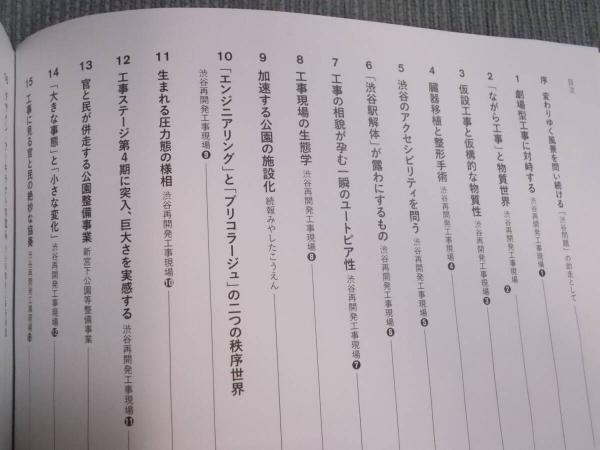 目次
序 変わりゆく風景を問い続ける 「渋谷問題」の助走として
1 劇場型工事に対峙する 渋谷再開発工事現場❶
2 「ながら工事」と物質世界 渋谷再開発工事現場❷
3 仮設工事と仮構的な物質性 渋谷再開発工事現場❸
4 臓器移植と整形手術 渋谷再開発工事現場❹
5 渋谷のアクセシビリティを問う 渋谷再開発工事現場❺
6 「渋谷駅解体」が露わにするもの 渋谷再開発工事現場❻
7 工事の相貌が孕む一瞬のユートピア性 渋谷再開発工事現場❼
8 工事現場の生態学 渋谷再開発工事現場❽
9 加速する公園の施設化 続報みやしたこうえん
10 「エンジニアリング」と「ブリコラージュ」の二つの秩序世界
渋谷再開発工事現場❾
11 生まれる圧力態の様相 渋谷再開発工事現場❿
12 工事ステージ第4期に突入、巨大さを実感する 渋谷再開発工事現場⓫
13 官と民が併走する公園整備事業 新宮下公園等整備事業
14 「大きな事態」と「小さな変化」 渋谷再開発工事現場⓬
15 工事に見る官と民の絶妙な協奏 渋谷再開発工事現場⓭